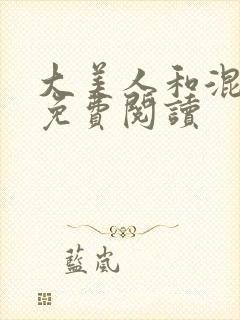 大美人和混
免費閱讀
藍嵐